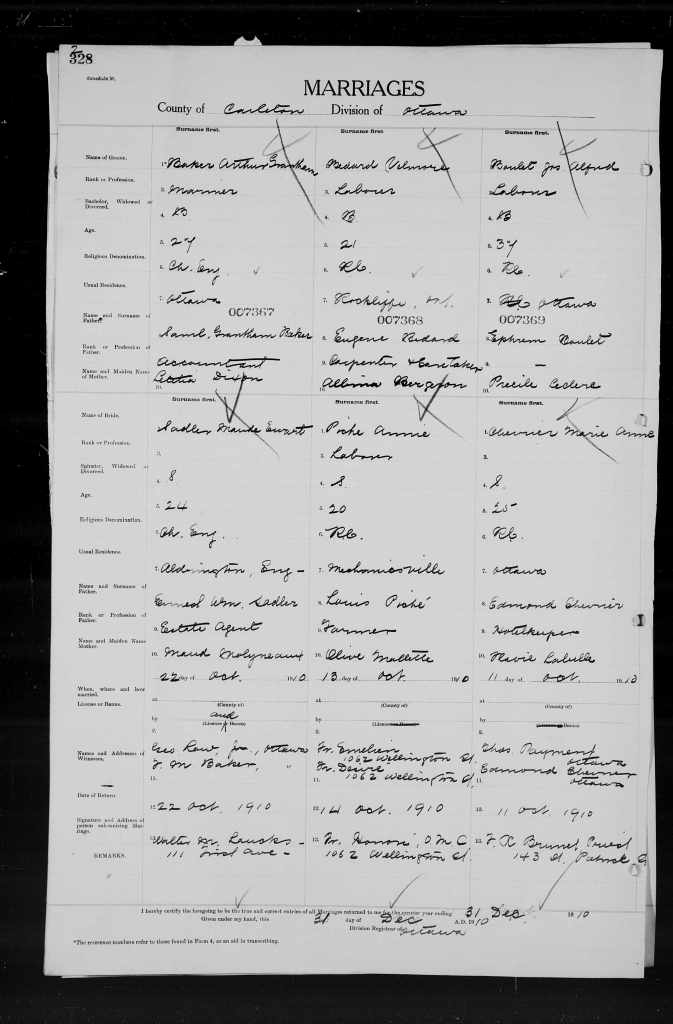 2
328
Schedule B.
MARRIAGES
County of Carleton Division of Ottawa
Surname first. Surname first. Surname first.
Name of Groom. 1. Baker Arthur Grantham Bedard Boulet Jos Alfred
Rank or Profession. 2. Mariner 2. Labour Labour
Bachelor, Widowed or Divorced. 4. B 4. B 4. B
Age. 5. 27 5. 21 5. 37
Religious Denomination. 6. Ch. Eng 6. R.C. 6. R.C.
Usual Residence. 7. Ottawa 7. Rockliffe 7. Ottawa
007367 007368 007369
Name and Surname of Father. Saml. Grantham Baker Eugene Bedard Ephrem Boulet
Rank or Profession of Father. Accountant 9. Carpenter & Caretaker 9. —
Name and Maiden Name of Mother. 10. Letitia Dixon 10. Albina Bergeron 10. Leclerc
Surname first. Surname first. Surname first.
Name of Bride. Sadler Maude Ewart 1. Piché Annie 1. Chevrier Marie Anne
Rank or Profession. 3. 3. Labour 3.
Spinster, Widowed or Divorced. 4. S 4. S 4. S.
Age. 5. 24 5. 20 5. 25
Religious Denomination. Ch. Eng. 6. R.C. 6. R.C.
Usual Residence. 7. Eng — 7. Mechanicsville 7. Ottawa
Name and Surname of Father. Ernest Wm. Sadler 8. Louis Piché 8. Edmond Chevrier
Rank or Profession of Father. 9. Estate Agent 9. Farmer 9. Hotelkeeper
Name and Maiden Name Mother. 10. Maud Molyneaux 10. Olive Mallette 10. Flavie Labelle
22 day of Oct. 1910 13 day of Oct. 1910 11 day of Oct. 1910
When, where and how married. at at. at.
(County of) (County of) (County of)
License or Banns. by and by by
(License or Banns) (License or Banns) (License or Banns)
Names and Addresses of Witnesses. Geo Law, Jr., Ottawa Fr. Emelien Chas. Payment
1062 Wellington St. Ottawa
F. M Baker, " Fr. 11. Edmond Chevrier
11. 1062 Wellington St, Ottawa
Date of Return. 12. 22 Oct. 1910 12. 14 Oct. 1910 12. 11 Oct. 1910
Signature and Address of person solemnizing Marriage. 13. Walter M. Loucks — 13. Fr. Honoré, O. M. C. 13. F. X Brunet Priest
REMARKS. 111 First Ave — 1062 Wellington St. 143 St. Patrick St.
I hereby certify the foregoing to be the true and correct entries of all Marriages returned to me for the quarter year ending 31 Dec 1910
Given under my hand, this 31 day of Dec A.D. 1910
Division Registrar of Ottawa
*The reverence numbers refer to those found in Form 4, as an aid in transcribing.